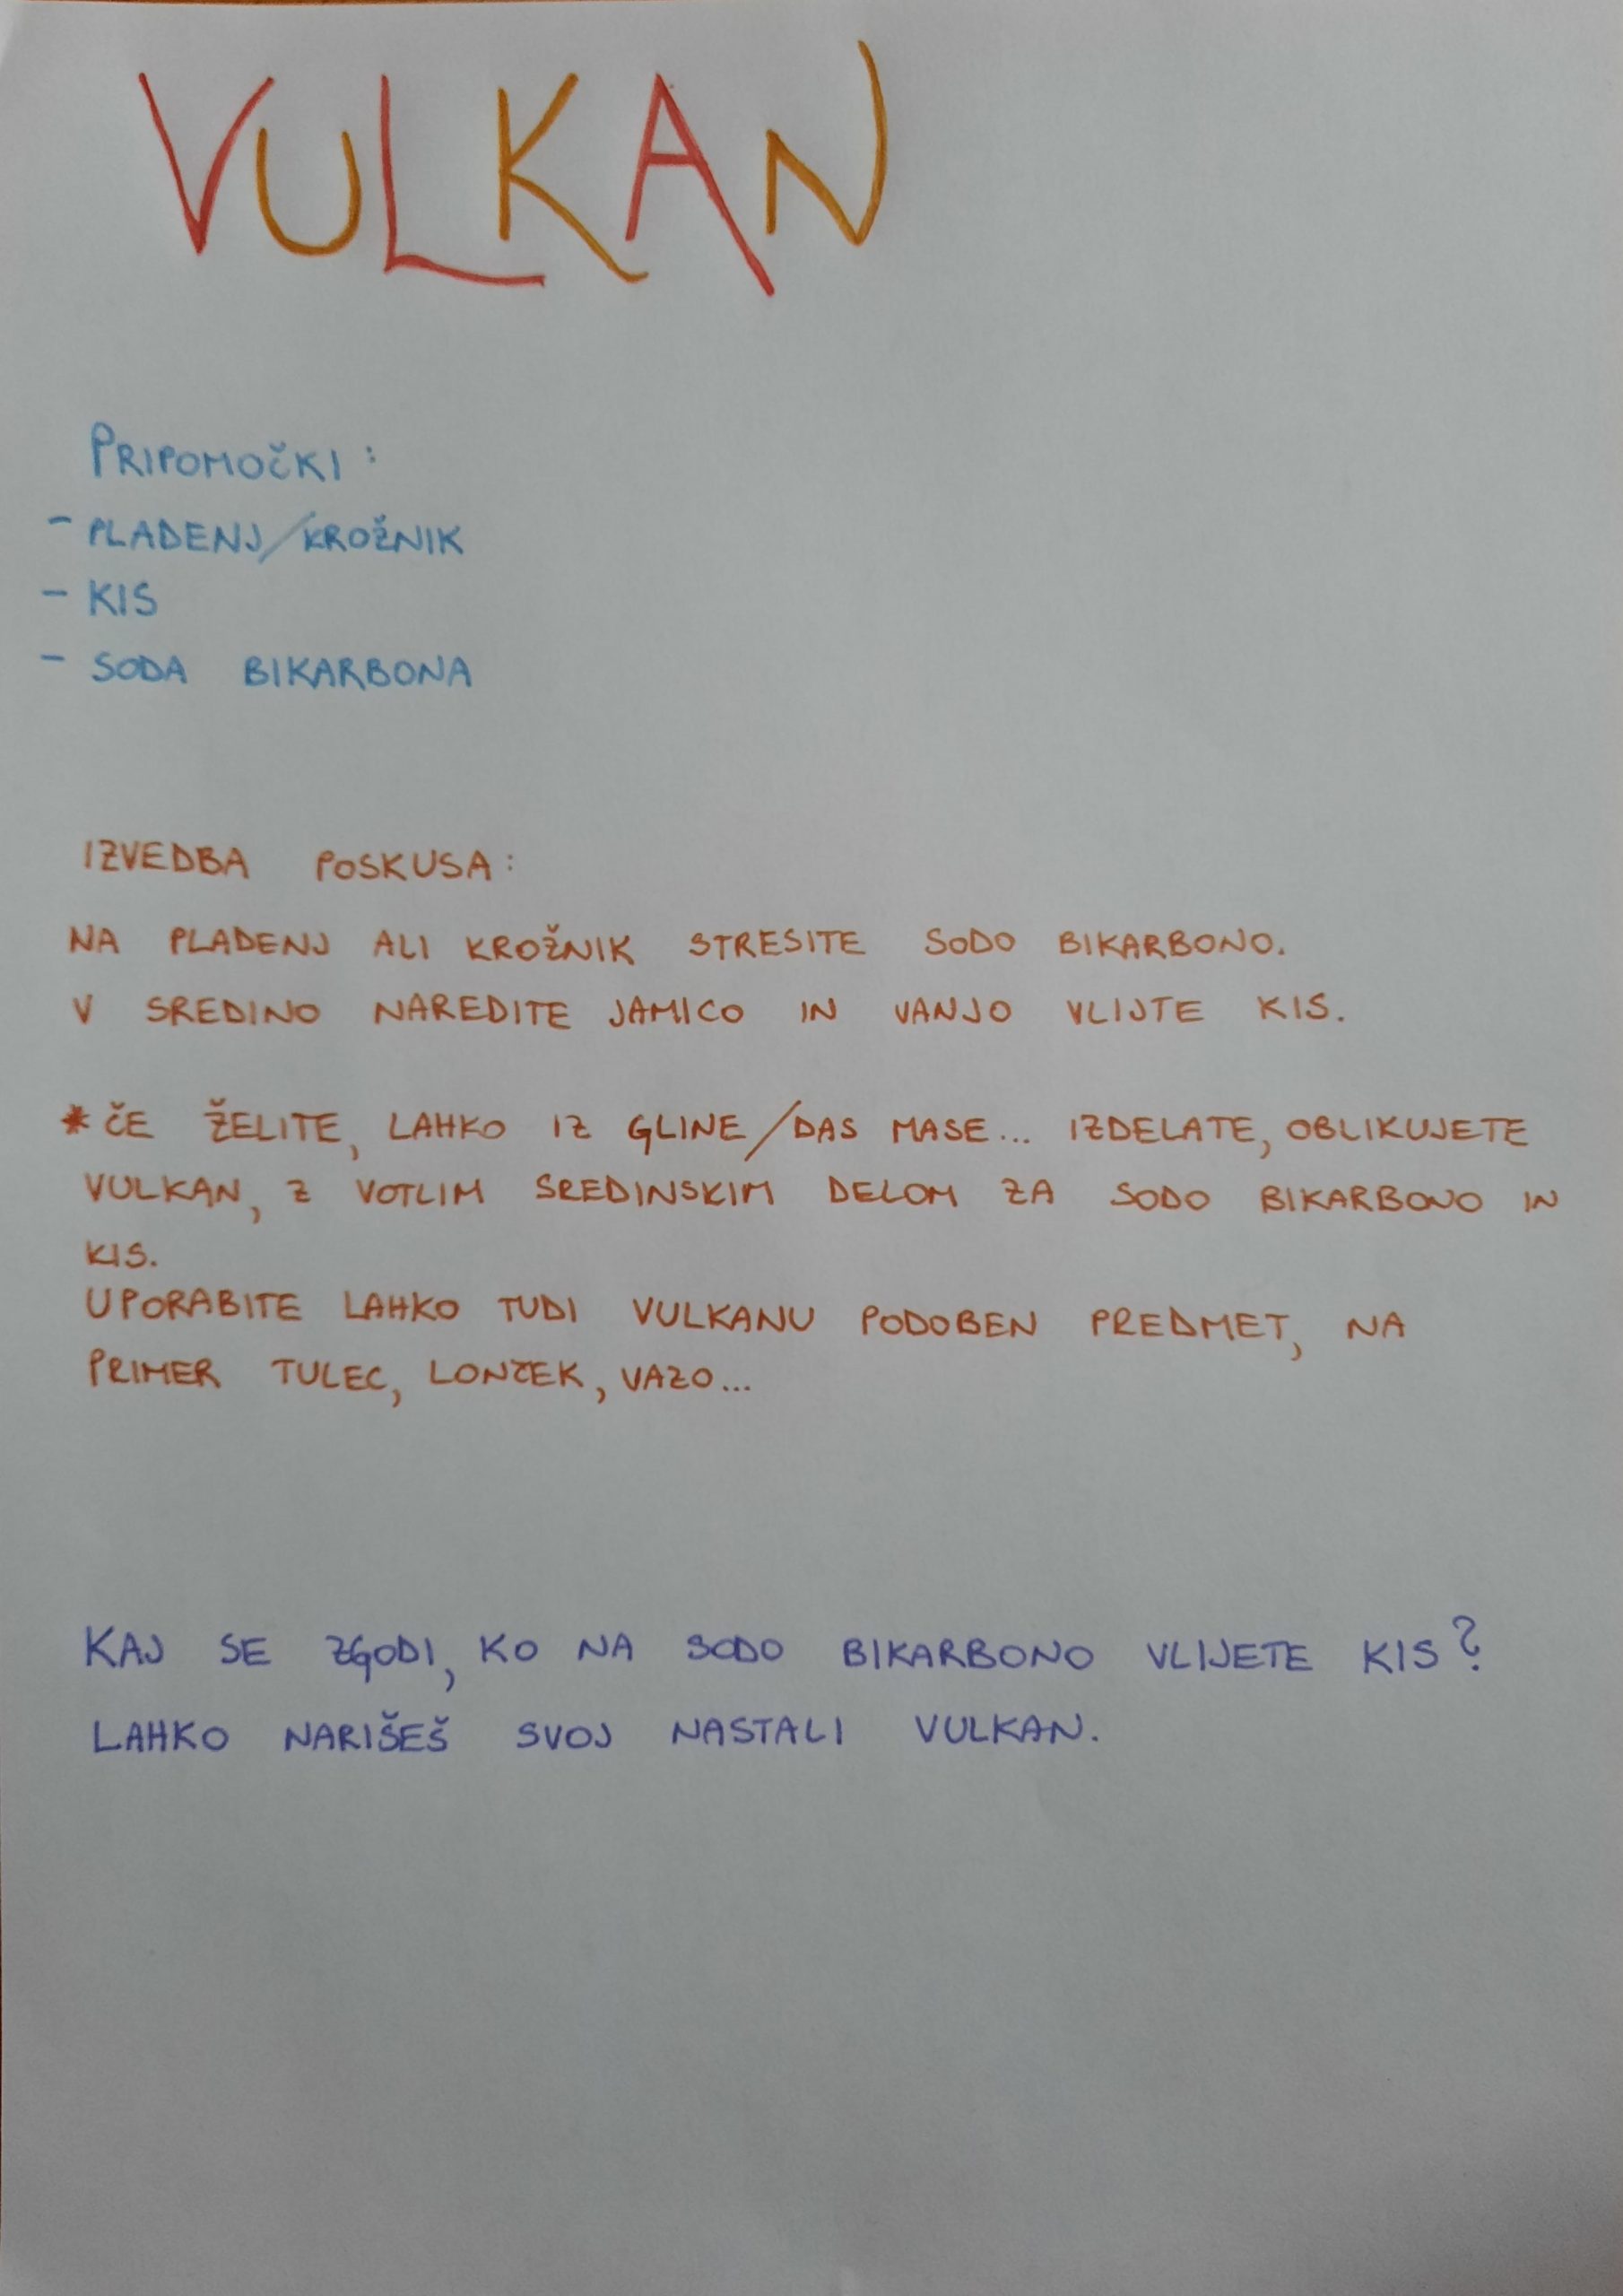 VULKAN
PRIPOMOČKI:
- PLADENJ/KROŽNIK
- KIS
- SODA BIKARBONA
IZVEDBA POSKUSA:
NA PLADENJ ALI KROŽNIK STRESITE SODO BIKARBONO.
V SREDINO NAREDITE JAMICO IN VANJO VLIJTE KIS.
* ČE ŽELITE, LAHKO IZ GLINE/DAS MASE... IZDELATE, OBLIKUJETE
VULKAN, Z VOTLIM SREDINSKIM DELOM ZA SODO BIKARBONO IN
KIS.
UPORABITE LAHKO TUDI VULKANU PODOBEN PREDMET, NA
PRIMER TULEC, LONČEK, VAZO...
KAJ SE ZGODI, KO NA SODO BIKARBONO VLIJETE KIS?
LAHKO NARIŠEŠ SVOJ NASTALI VULKAN.